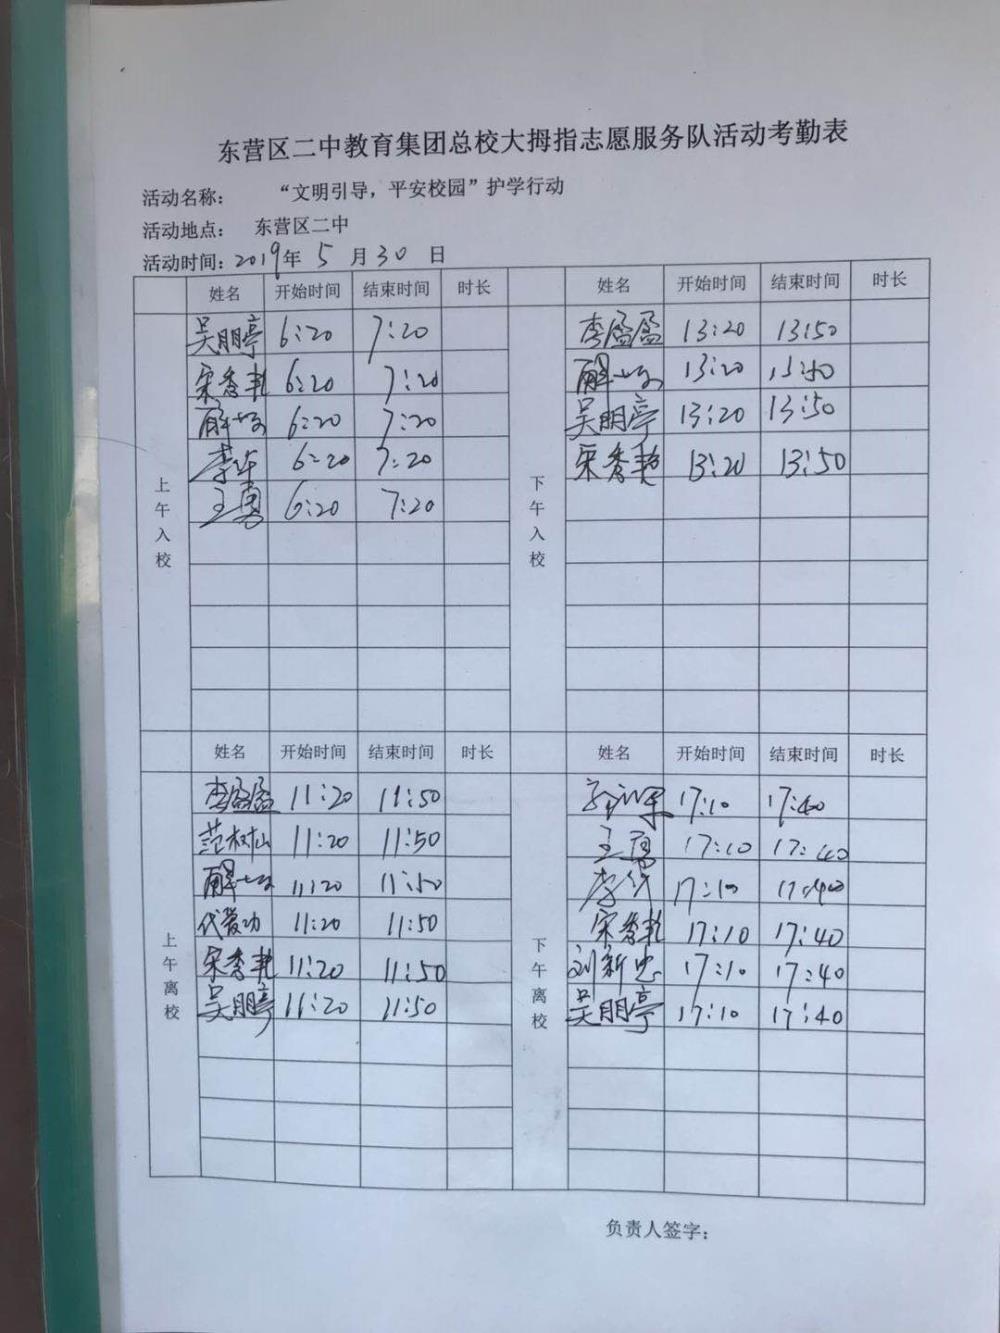 东营区二中教育集团总校大拇指志愿服务队活动考勤表
活动名称： “文明引导，平安校园”护学行动
活动地点： 东营区二中
活动时间：2019年 5 月 30 日
姓名 开始时间 结束时间 时长 姓名 开始时间 结束时间 时长
上午入校 下午入校
吴朋亭 6:20 7:20 李盈盈 13:20 13:50
宋秀艳 6:20 7:20 13:20
6:20 7:20 吴朋亭 13:20 13:50
李华 6:20 7:20 宋秀艳 13:20 13:50
王勇 6:20 7:20
姓名 开始时间 结束时间 时长 姓名 开始时间 结束时间 时长
上午离校 下午离校
李盈盈 11:20 11:50 17:10 17:40
范树仙 11:20 11:50 王勇 17:10 17:40
11:20 11:50 李华 17:10 17:40
代营功 11:20 11:50 宋秀艳 17:10 17:40
宋秀艳 11:20 11:50 刘新忠 17:10 17:40
吴朋亭 11:20 11:50 吴朋亭 17:10 17:40
负责人签字：